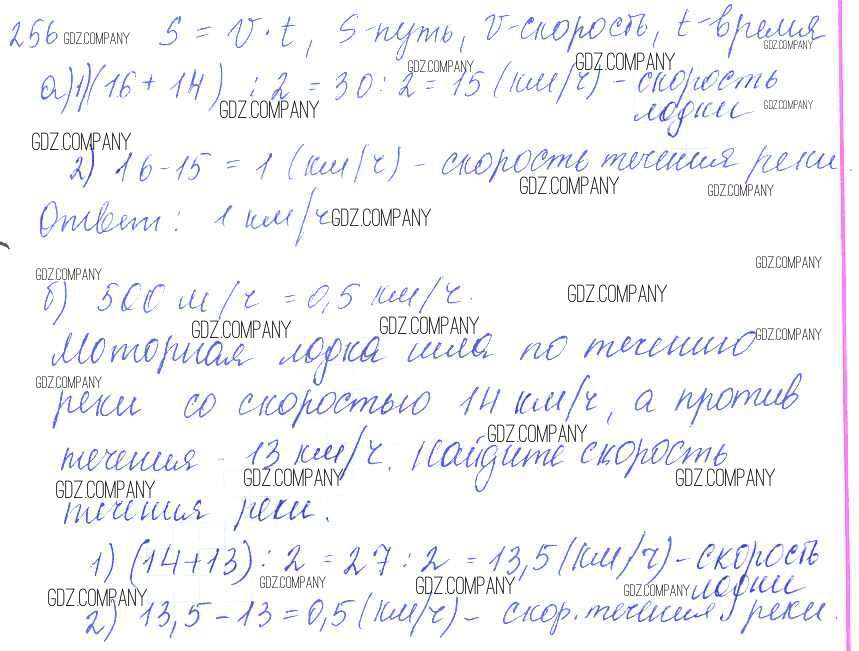 256 GDZ.COMPANY S = v · t, S-путь, v-скорость, t-время
GDZ.COMPANY GDZ.COMPANY GDZ.COMPANY
а) 1) (16 + 14) : 2 = 30 : 2 = 15 (км/ч) - скорость
GDZ.COMPANY лодки GDZ.COMPANY
GDZ.COMPANY
2) 16 - 15 = 1 (км/ч) - скорость течения реки.
GDZ.COMPANY GDZ.COMPANY
Ответ: 1 км/ч GDZ.COMPANY
GDZ.COMPANY GDZ.COMPANY
б) 500 м/ч = 0,5 км/ч. GDZ.COMPANY
GDZ.COMPANY GDZ.COMPANY GDZ.COMPANY
Моторная лодка шла по течению
GDZ.COMPANY
реки со скоростью 14 км/ч, а против
GDZ.COMPANY
течения - 13 км/ч. Найдите скорость
GDZ.COMPANY GDZ.COMPANY GDZ.COMPANY
течения реки.
1) (14 + 13) : 2 = 27 : 2 = 13,5 (км/ч) - скорость
GDZ.COMPANY GDZ.COMPANY GDZ.COMPANY GDZ.COMPANY лодки
2) 13,5 - 13 = 0,5 (км/ч) - скор. течения реки.